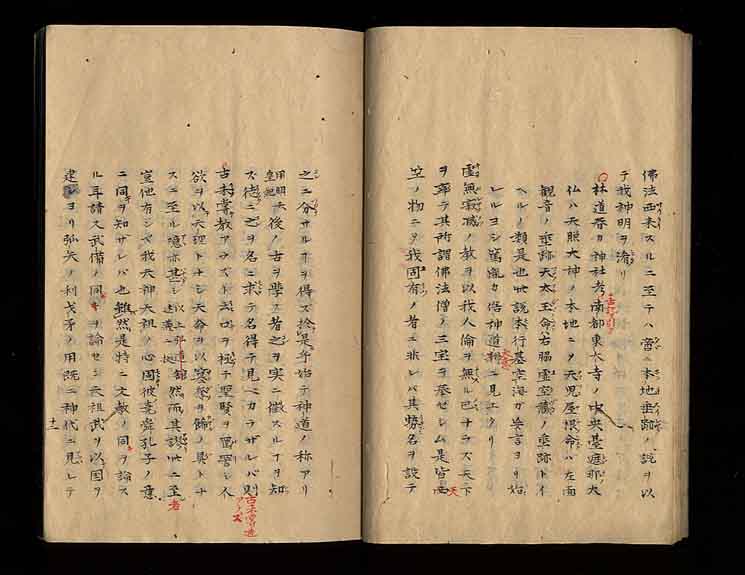 佛法西来スルニ至テハ啻ニ本地垂跡ノ説ヲ以
テ我神明ヲ淆リ
○林道春カ神社考ノ南都東大寺ノ中央盧遮那大
仏ハ天照大神ノ本地ニメ天児屋根命ハ左面
観音ノ垂跡天太玉命ハ右脇虚空蔵ノ垂跡トイ
ヘルノ類是也此説本行基空海ガ妄言ヨリ始
レルヨシ篤胤カ俗神道辨ニ見エタリ
虚無寂滅ノ教ヲ以我人倫ヲ無ル已ナラス天下
ヲ挙テ其所謂佛法僧ノ三宝ヲ崇セシム是皆西天
竺ノ物ニメ我固有ノ者ニ非レバ其勢名ヲ設テ
之ニ分サルヿヲ得ズ於是乎始テ神道ノ称アリ
用明天皇紀後ノ古ヲ学ズ者之ヲ実ニ徴スルヿヲ知
ズ徒ニ之ヲ名ニ求テ名得テ見ベカラザレバ則
古未嘗教アラズト云口ヲ極テ聖賢ヲ罵詈シ人
欲ヲ以天理トナシ天命ヲ以寇攘ヲ飾ノ具トナ
スニ至ル噫亦甚シ以上然而其謬此ニ至者
豈他有ンヤ我天神天祖ノ心固彼堯舜孔子ノ意
ニ同ヲ知ザレバ也雖然是特ニ文教ノ同ヲ論ス
ル耳請又武備ノ同ヲ論セン天祖武ヲ以国ヲ
建シヨリ弧矢ノ利戈矛ノ用既ニ神代ニ見レテ
十一